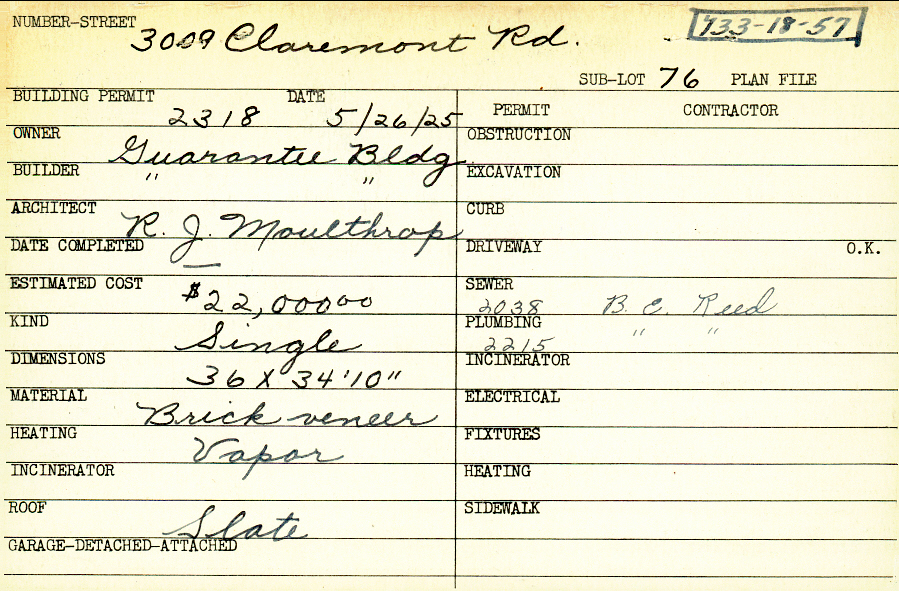 NUMBER-STREET 3009 Claremont Rd. 733-18-57
SUB-LOT 76 PLAN FILE
BUILDING PERMIT 2318 DATE 5/26/25
PERMIT CONTRACTOR
OWNER Guarantee Bldg.
OBSTRUCTION
BUILDER " "
EXCAVATION
ARCHITECT R. J. Moulthrop
CURB
DATE COMPLETED —
DRIVEWAY O.K.
ESTIMATED COST $22,000 00
SEWER 2038 B. E. Reed
KIND Single
PLUMBING 2215 " "
DIMENSIONS 36 X 34'10"
INCINERATOR
MATERIAL Brick veneer
ELECTRICAL
HEATING Vapor
FIXTURES
INCINERATOR
HEATING
ROOF Slate
SIDEWALK
GARAGE-DETACHED-ATTACHED